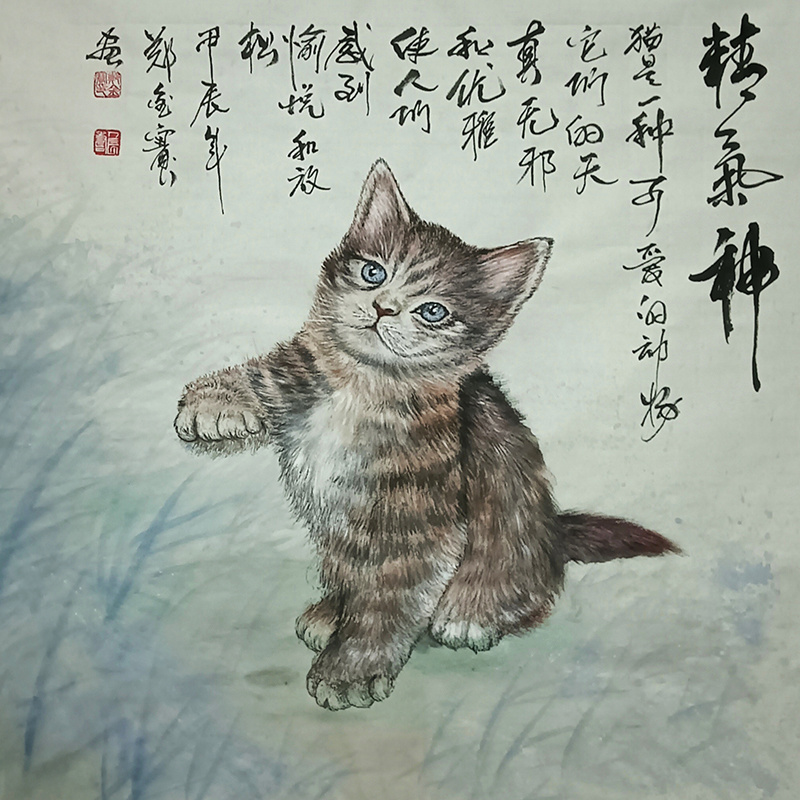 精氣神
猫是一种可爱的动物
它们的天
真无邪
和优雅
使人们
感到
愉悦和放
松
甲辰年
郑金宝
画